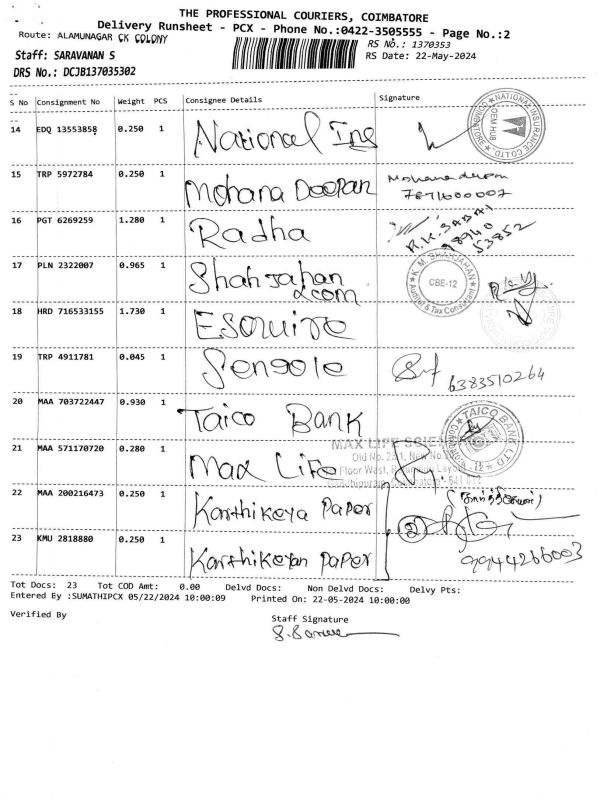 THE PROFESSIONAL COURIERS, COIMBATORE
Delivery Runsheet - PCX - Phone No.:0422-3505555 - Page No.:2
Route: ALAMUNAGAR CK COLONY
RS No.: 1370353
Staff: SARAVANAN S
RS Date: 22-May-2024
DRS No.: DCJB137035302
S No Consignment No Weight PCS Consignee Details Signature
14 EDQ 13553858 0.250 1 National Ins
NATIONAL INSURANCE CO LTD. COIMBATORE
OEM HUB
15 TRP 5972784 0.250 1 Mohana Doopan
7871600007
16 PGT 6269259 1.280 1 Radha
98940
53852
17 PLN 2322007 0.965 1 Shahjahan
& com
K. M. SHAHJAHAN
CBE-12
Auditor & Tax Consultant
18 HRD 716533155 1.730 1 Esquire
19 TRP 4911781 0.045 1 Sengole
6383510264
20 MAA 703722447 0.930 1 Taico Bank
TAICO BANK LTD
21 MAA 571170720 0.280 1 Max Life
MAX LIFE
22 MAA 200216473 0.250 1 Karthikeya Paper
23 KMU 2818880 0.250 1 Karthikeyan Paper
9944266003
Tot Docs: 23 Tot COD Amt: 0.00 Delvd Docs: Non Delvd Docs: Delvy Pts:
Entered By :SUMATHIPCX 05/22/2024 10:00:09 Printed On: 22-05-2024 10:00:00
Verified By
Staff Signature